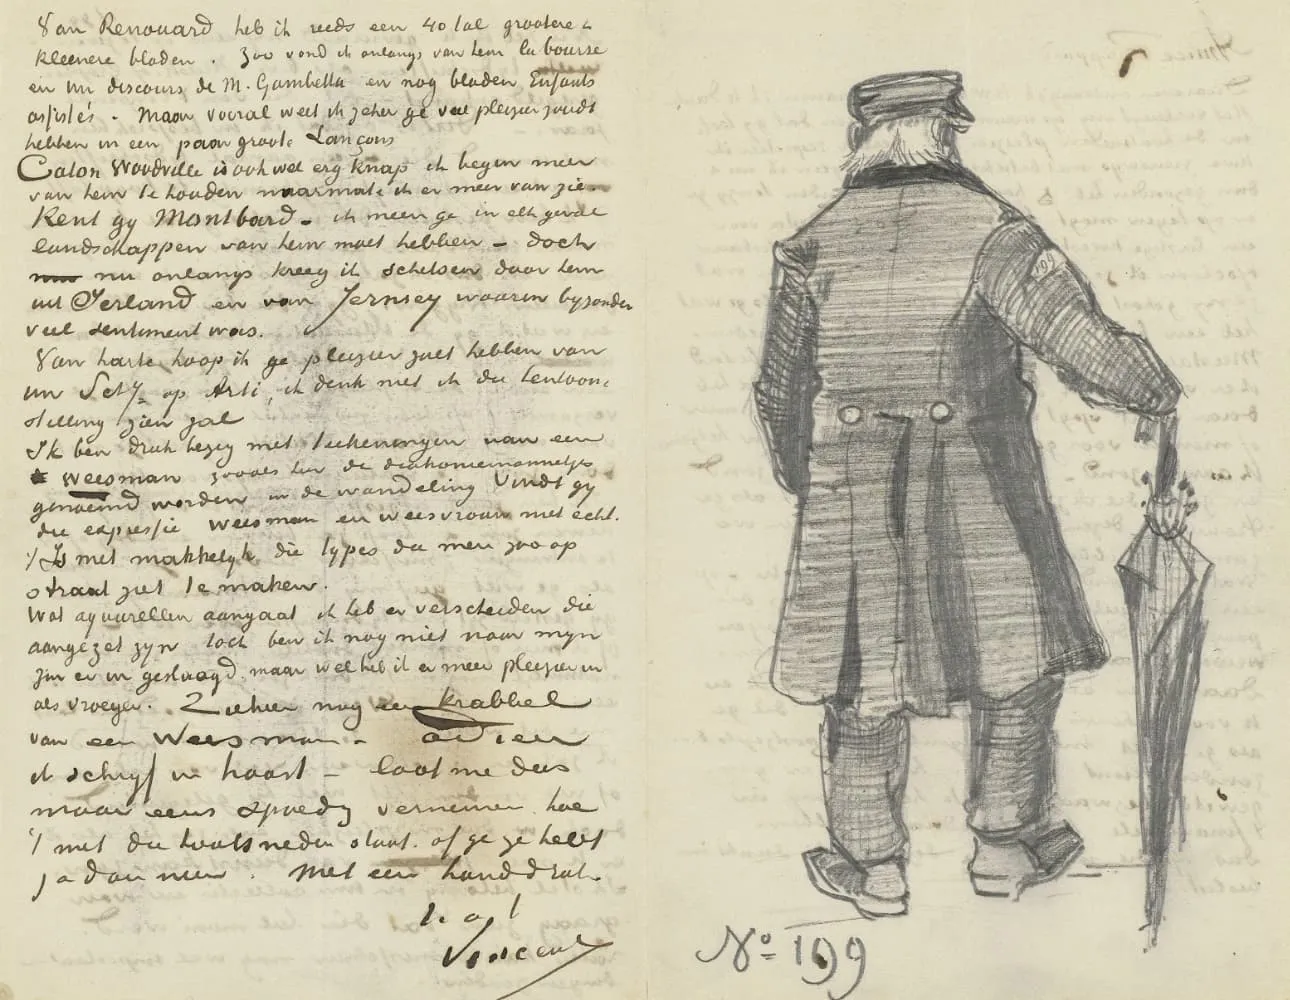 Van Renouard heb ik reeds een 40 tal grootere &
kleenere bladen. Zoo vond ik onlangs van hem la bourse
en un discours de M. Gambetta en nog bladen Enfants
assistés. Maar vooral weet ik zeker ge veel pleizier zoudt
hebben in een paar groote Lançons
Caton Woodville is ook wel erg knap ik begin meer
van hem te houden naarmate ik er meer van zie.
Kent gy Montbard – ik meen ge in elk geval
landschappen van hem moet hebben – doch
nu onlangs kreeg ik schetsen door hem
uit Ierland en van Jersey waarin byzonder
veel sentiment was.
Van harte hoop ik ge pleizier zult hebben van
uw op Arti, ik denk niet ik die tentoon-
stelling zien zal
Ik ben druk bezig met teekeningen van een
weesman zooals hier de diakoniemannetjes
genoemd worden in de wandeling Vindt gy
die expressie weesman en weesvrouw niet echt.
't Is niet makkelyk die types die men zoo op
straat ziet te maken.
Wat aquarellen aangaat ik heb er verscheiden die
aangezet zyn toch ben ik nog niet naar myn
zin er in geslaagd. maar wel heb ik er meer pleizier in
als vroeger. Ziehier nog een krabbel
van een Weesman – adieu
ik schryf in haast – laat me dus
maar eens spoedig vernemen hoe
't met die houtsneden staat. of ge ze hebt
ja dan neen. Met een handdruk.
t. à t.
Vincent
199
No 199